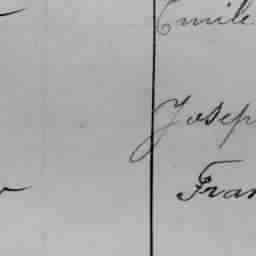 Emile
Josep
Fran